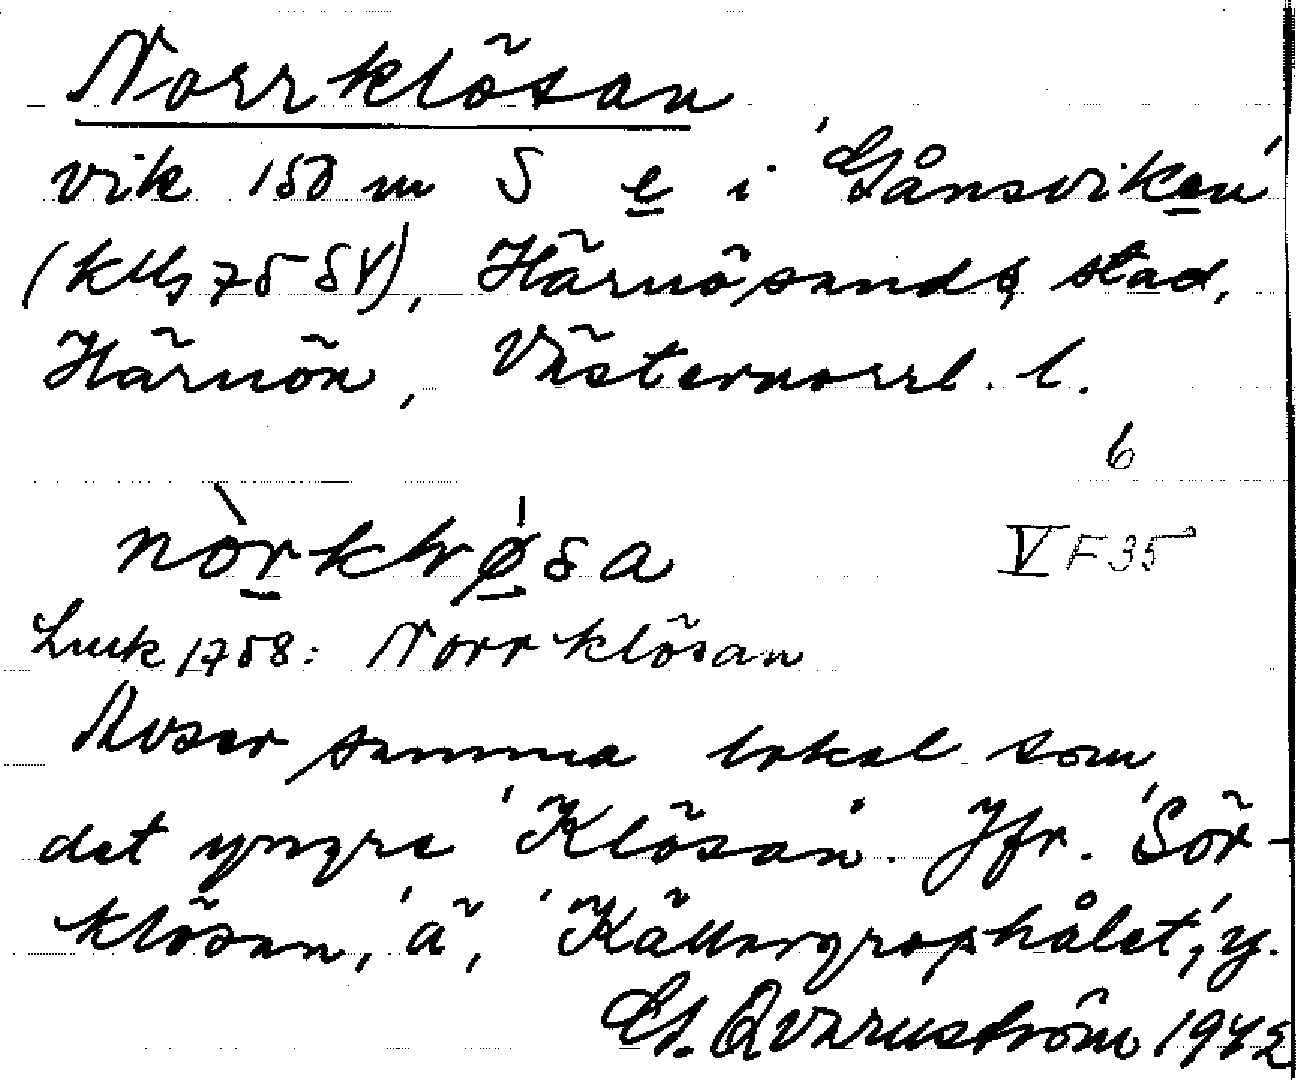 Norrklösan
vik 150 m S e i 'Gånsviken'
(klls 75 SV), Härnösands stad,
Härnön, Västernorrl. l.
6
nòrklø̀sa
V F 35
Luuk 1758: Norrklösan
Avser samma lokal som
det yngre 'Klösan'. Jfr. 'Sör-
klösan,' ä, 'Källargropshålet,' y.
Qvarnström 1942